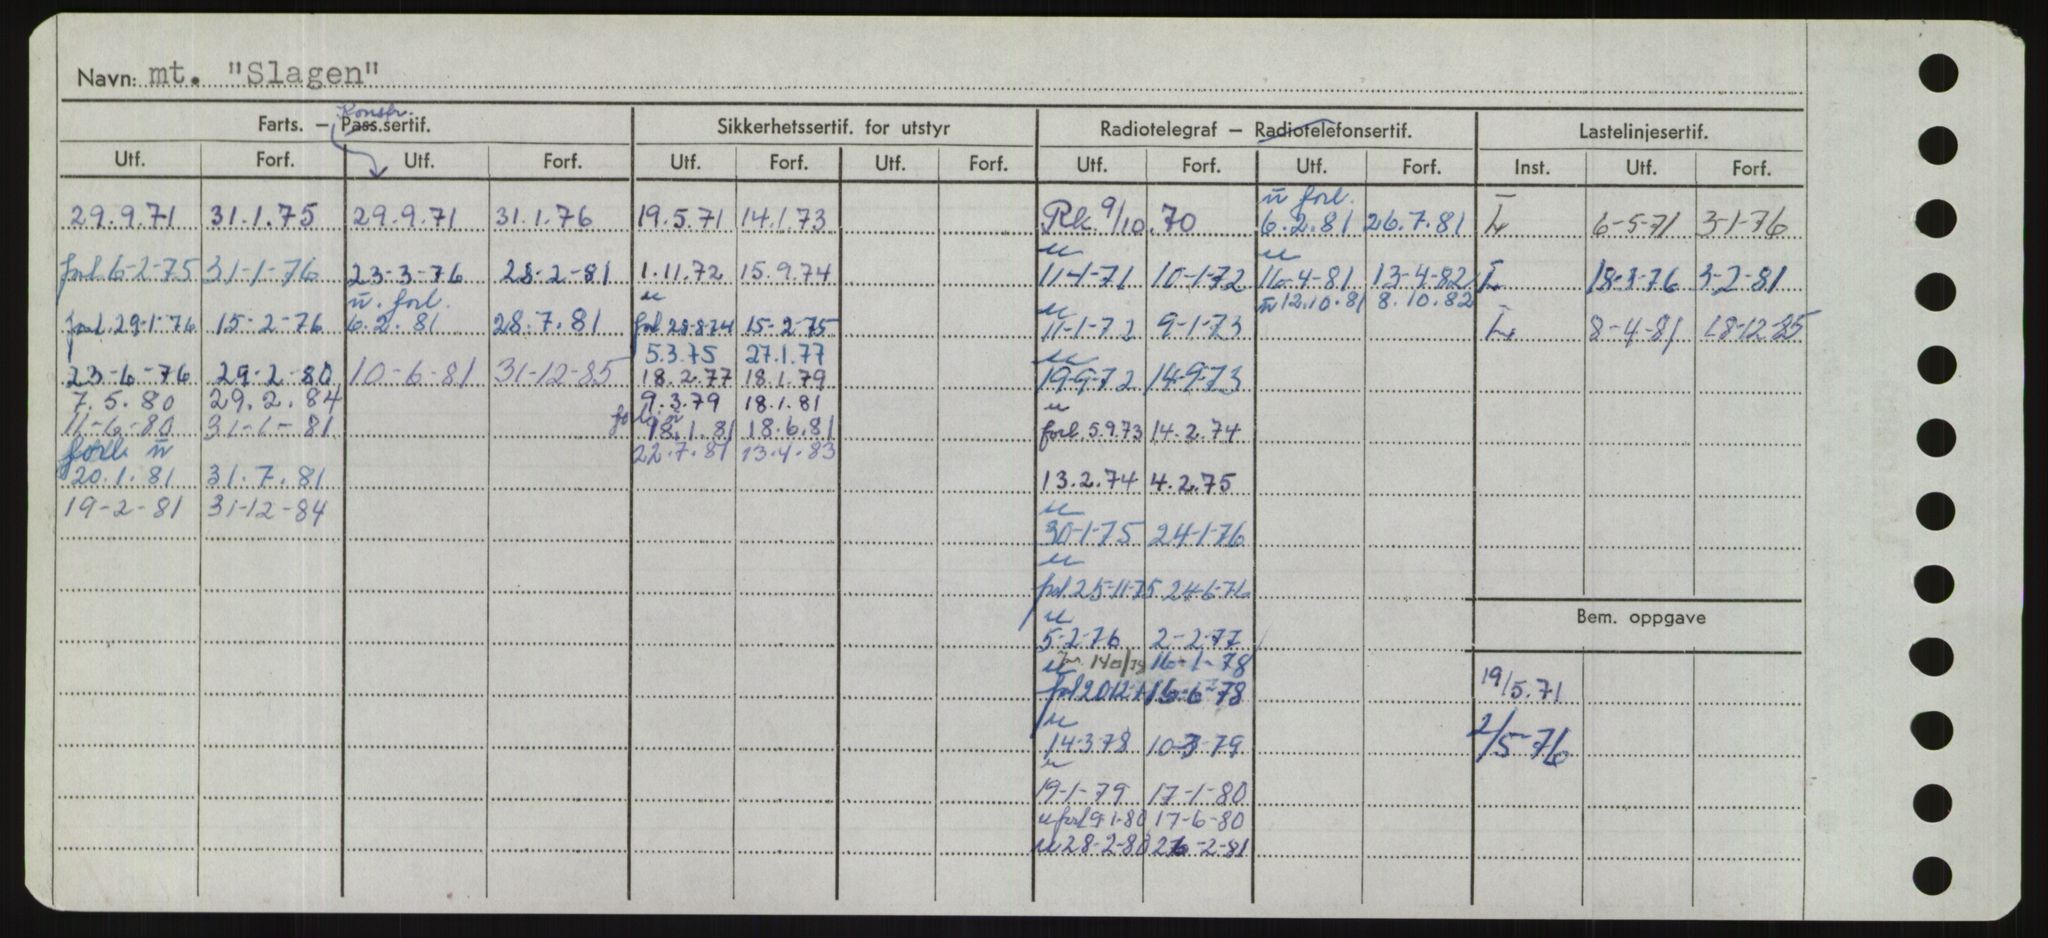 Navn: mt. "Slagen"
Konstr.
Farts. — Pass.sertif. Sikkerhetssertif. for utstyr Radiotelegraf — Radiotelefonsertif. Lastelinjesertif.
Utf. Forf. Utf. Forf. Utf. Forf. Utf. Forf. Utf. Forf. Utf. Forf. Inst. Utf. Forf.
ū forl.
29.9.71 31.1.75 29.9.71 31.1.76 19.5.71 14.1.73 Rk. 9/10.70 6.2.81 26.7.81 L 6-5-71 3-1-76
u u
forl 6-2-75 31-1-76 23-3-76 28-2-81 1.11.72 15.9.74 11-1-71 10-1-72 16-4-81 13-4-82 L 18-3-76 3-2-81
ū. forl. u u ū 12.10.81 8.10.82
forl 29-1-76 15-2-76 6.2.81 28.7.81 forl 28-8-74 15-2-75 11-1-72 9-1-73 L 8-4-81 18-12-85
5.3.75 27.1.77 u
23-6-76 29-2-80 10-6-81 31-12-85 18.2.77 18.1.79 19-9-72 14-9-73
7.5.80 29.2.84 9.3.79 18.1.81 u
11-6-80 31-1-81 forl. ū 18.1.81 18.6.81 forl. 5.9.73 14.2.74
forl. ū 22.7.81 13.4.83
20.1.81 31.7.81 13.2.74 4.2.75
19-2-81 31-12-84 u
30-1-75 24-1-76
u
forl 25-11-75 24-6-76
u
5-2-76 2-2-77
u 140/79 16-1-78
forl 2012-1 16-6-78 19/5.71
u
14-3-78 10-3-79 2/5-76
u
19-1-79 17-1-80
u forl 9-1-80 17-6-80
u 28-2-80 26-2-81
Bem. oppgave